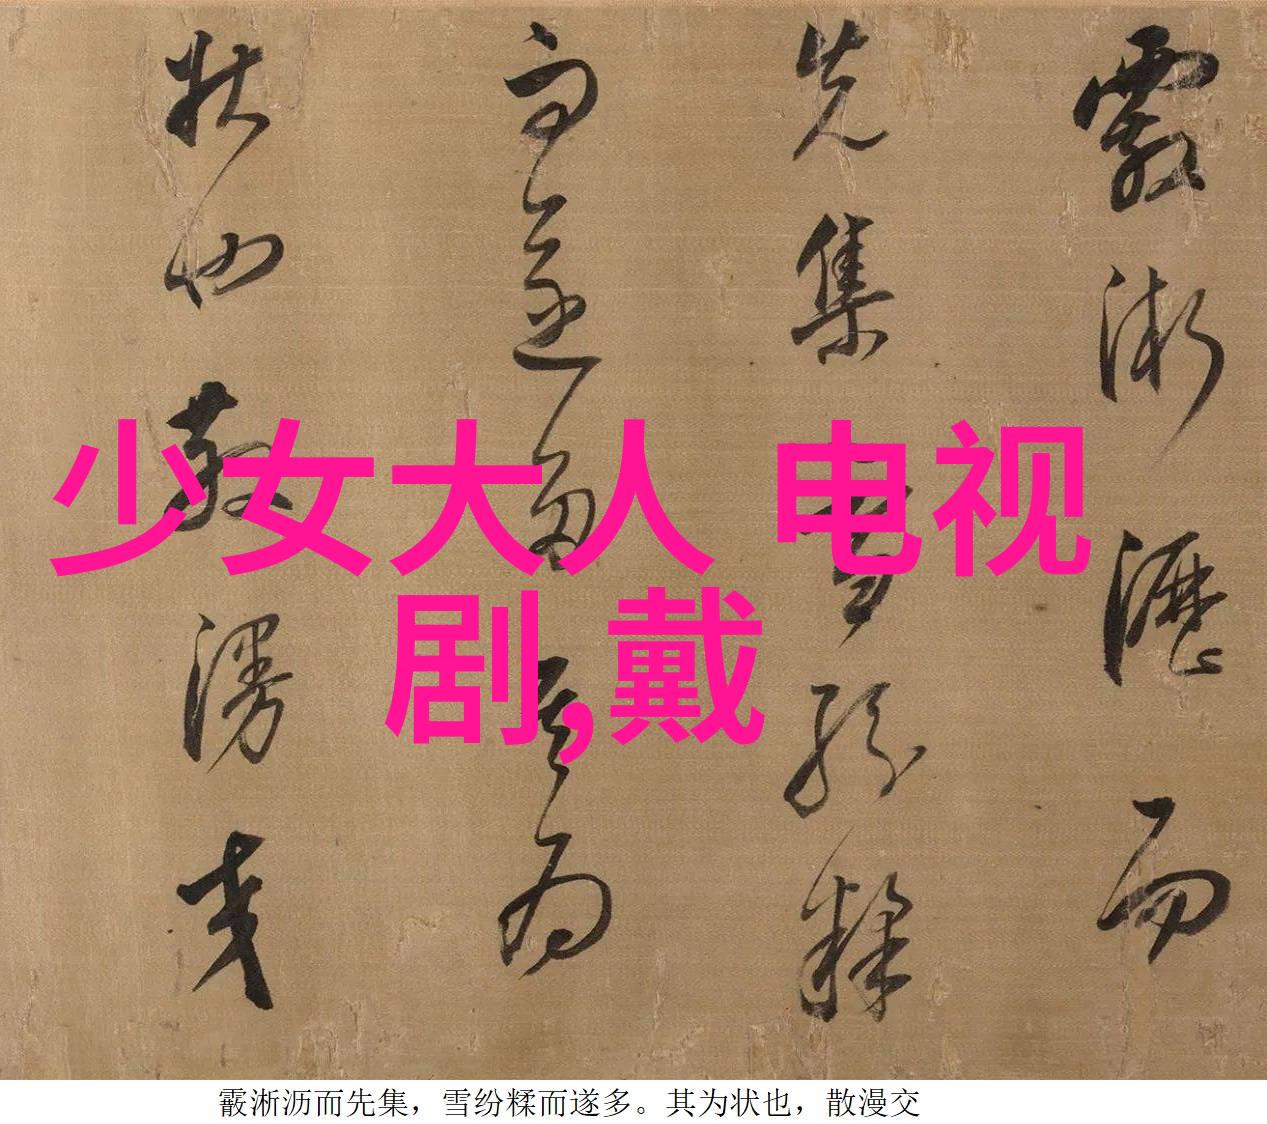 霰淅沥而
先集雪纷糅
而遂多其为
状也散漫交
少女大人 电视
剧,戴
霰淅沥而先集，雪纷糅而遂多。其为状也，散漫交